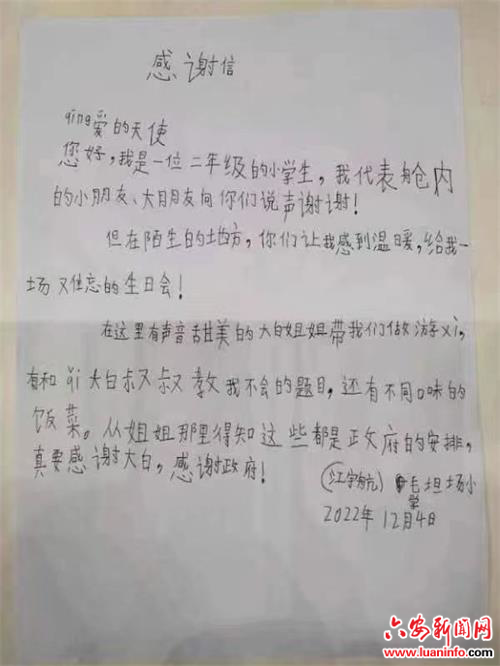 感谢信
qing爱的天使
您好,我是一位二年级的小学生,我代表舱内
的小朋友、大朋友向你们说声谢谢!
但在陌生的地方,你们让我感到温暖,给我一
场难忘的生日会!
在这里有声音甜美的大白姐姐带我们做游xi,
有和qi大白叔叔教我不会的题目,还有不同口味的
饭菜。从姐姐那里得知这些都是政府的安排,
真要感谢大白,感谢政府!
(江宇航) 毛坦场小
学
2022年12月4日
六安新闻网
www.luaninfo.com